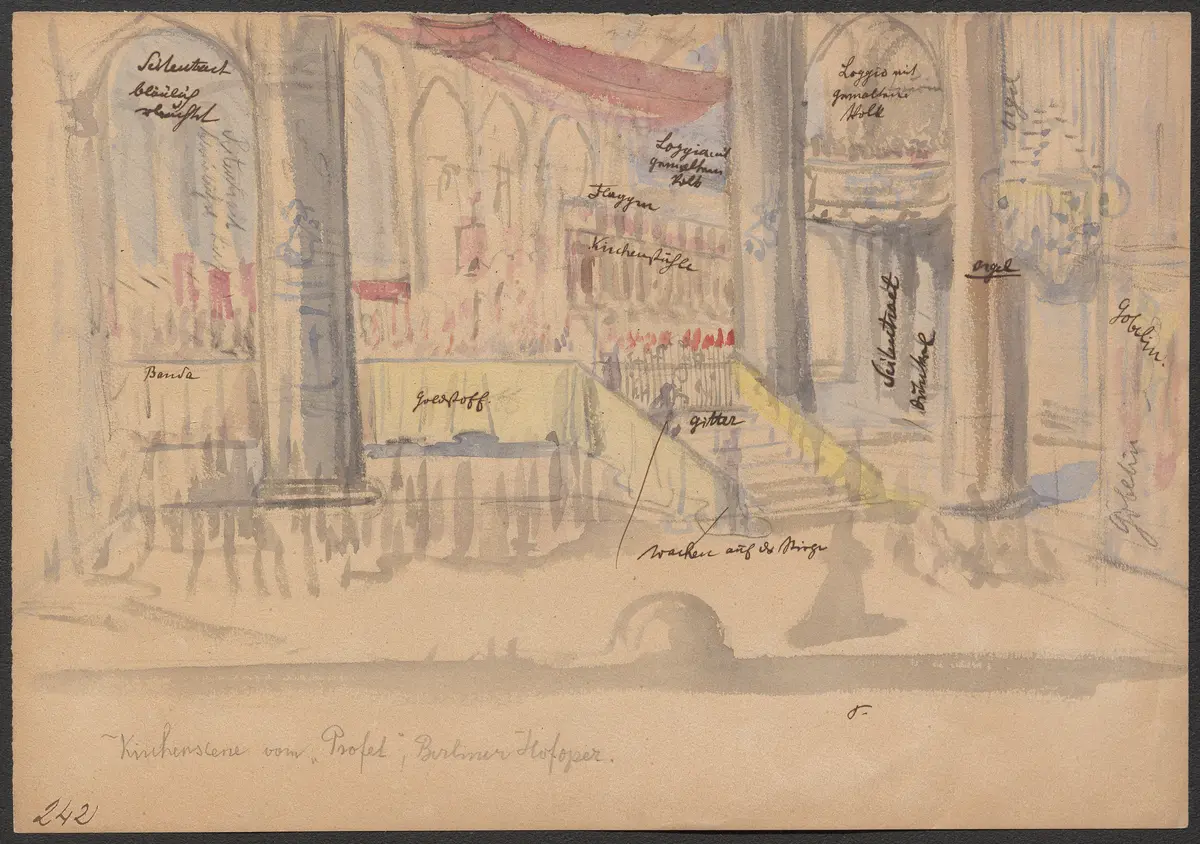 Seitentract
bläulich
Loggia mit
gemaltem
Volk
Loggia mit
gemaltem
Volk
Orgel
Flaggen
Kirchenstühle
Orgel
Seitentract
dunkel
Gobelin
Banda
Goldstoff
Gitter
Gobelin
Wachen auf der Stiege
"Kirchenscene vom „Profet", Berliner Hofoper.
242